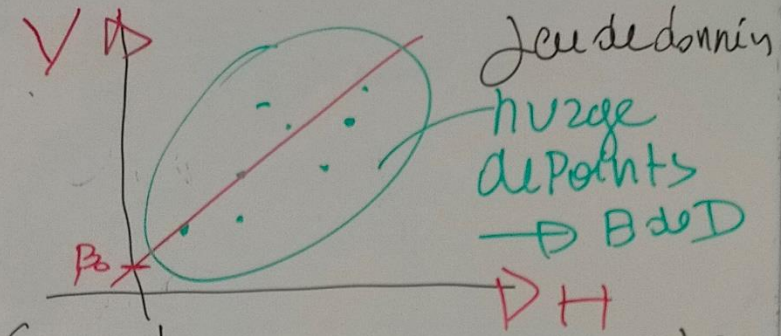 V
Jeu de données
nuage
de points
→ B de D
β₀
H